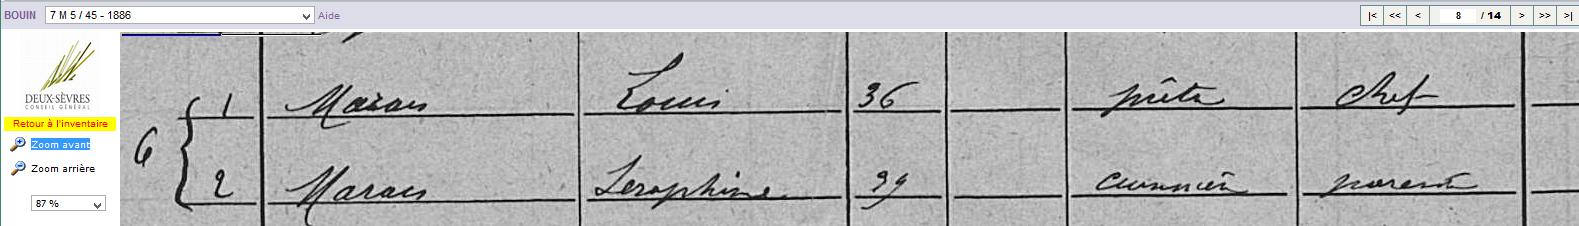 BOUIN 7 M 5 / 45 - 1886 Aide |< << < 8 / 14 > >> >|
DEUX-SÈVRES
CONSEIL GÉNÉRAL
Retour à l'inventaire
Zoom avant
Zoom arrière
87 %
1 Marais Louis 36 prêtre chef
6
2 Marais Seraphine 39 cuisinière parente